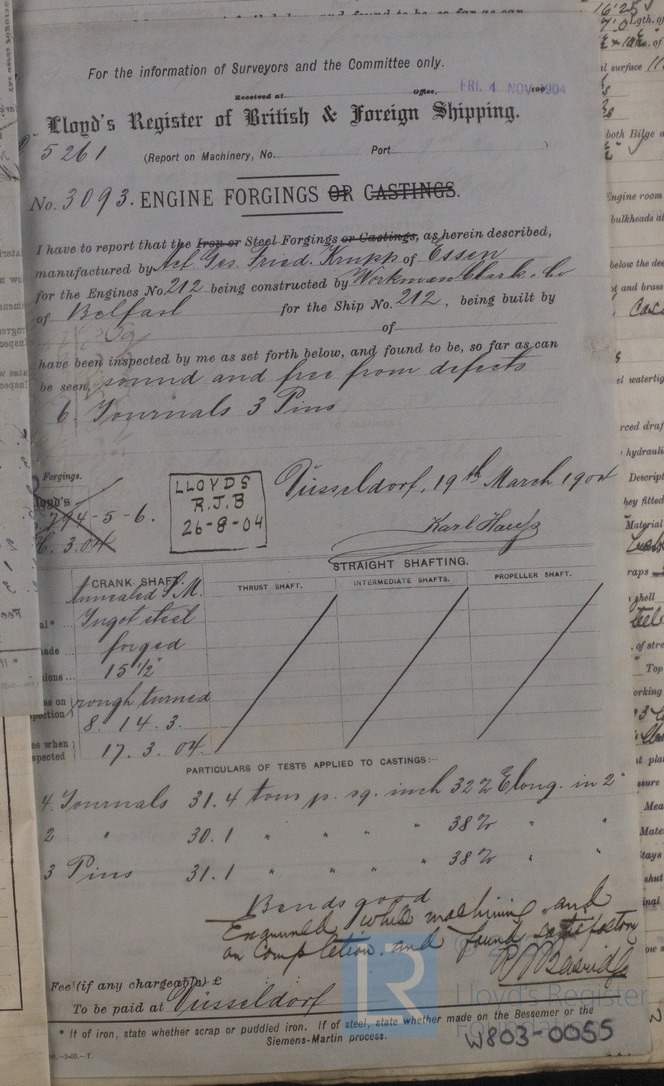 For the information of Surveyors and the Committee only.
Received at Office, FRI. 4 NOV 1904
Lloyd's Register of British & Foreign Shipping.
5261 (Report on Machinery, No. Port )
No. 3093. ENGINE FORGINGS OR CASTINGS.
I have to report that the Iron or Steel Forgings or Castings, as herein described,
manufactured by Act. Ges. Fried. Krupp of Essen
for the Engines No. 212 being constructed by Workman Clark & Co
of Belfast for the Ship No. 212, being built by
of
have been inspected by me as set forth below, and found to be, so far as can
be seen, sound and free from defects
6. Journals 3 Pins
Forgings.
Lloyd's
794-5-6.
3.04
LLOYDS
R.J.B
26-8-04
Düsseldorf, 19th March 1904
Karl
STRAIGHT SHAFTING.
CRANK SHAFT. THRUST SHAFT. INTERMEDIATE SHAFTS. PROPELLER SHAFT.
Annealed S.M.
Ingot steel
forged
15 1/2"
rough turned
8. 14. 3.
17. 3. 04.
PARTICULARS OF TESTS APPLIED TO CASTINGS:—
4. Journals 31.4 tons p. sq. inch 32% Elong. in 2"
2 " 30.1 " " " " 38% " "
3 Pins 31.1 " " " " 38% " "
Bends good
Examined while machining and
on completion and found satisfactory
R.J. Beveridge
Fee (if any chargeable) £
To be paid at Düsseldorf
* If of iron, state whether scrap or puddled iron. If of steel, state whether made on the Bessemer or the
Siemens-Martin process.
© 2020
LR
Lloyd's Register
Foundation
W803-0055